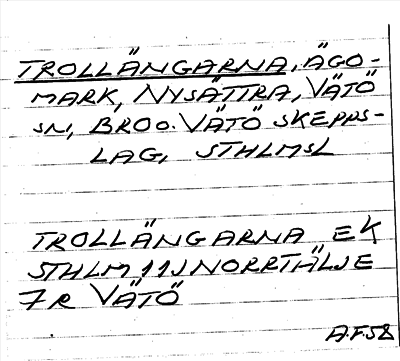 TROLLÄNGARNA, ÄGO-
MARK, NYSÄTTRA, VÄTÖ
SN, BRO O. VÄTÖ SKEPPS-
LAG, STHLMSL
TROLLÄNGARNA EK
STHLM 11J NORRTÄLJE
7R VÄTÖ
A.F.58